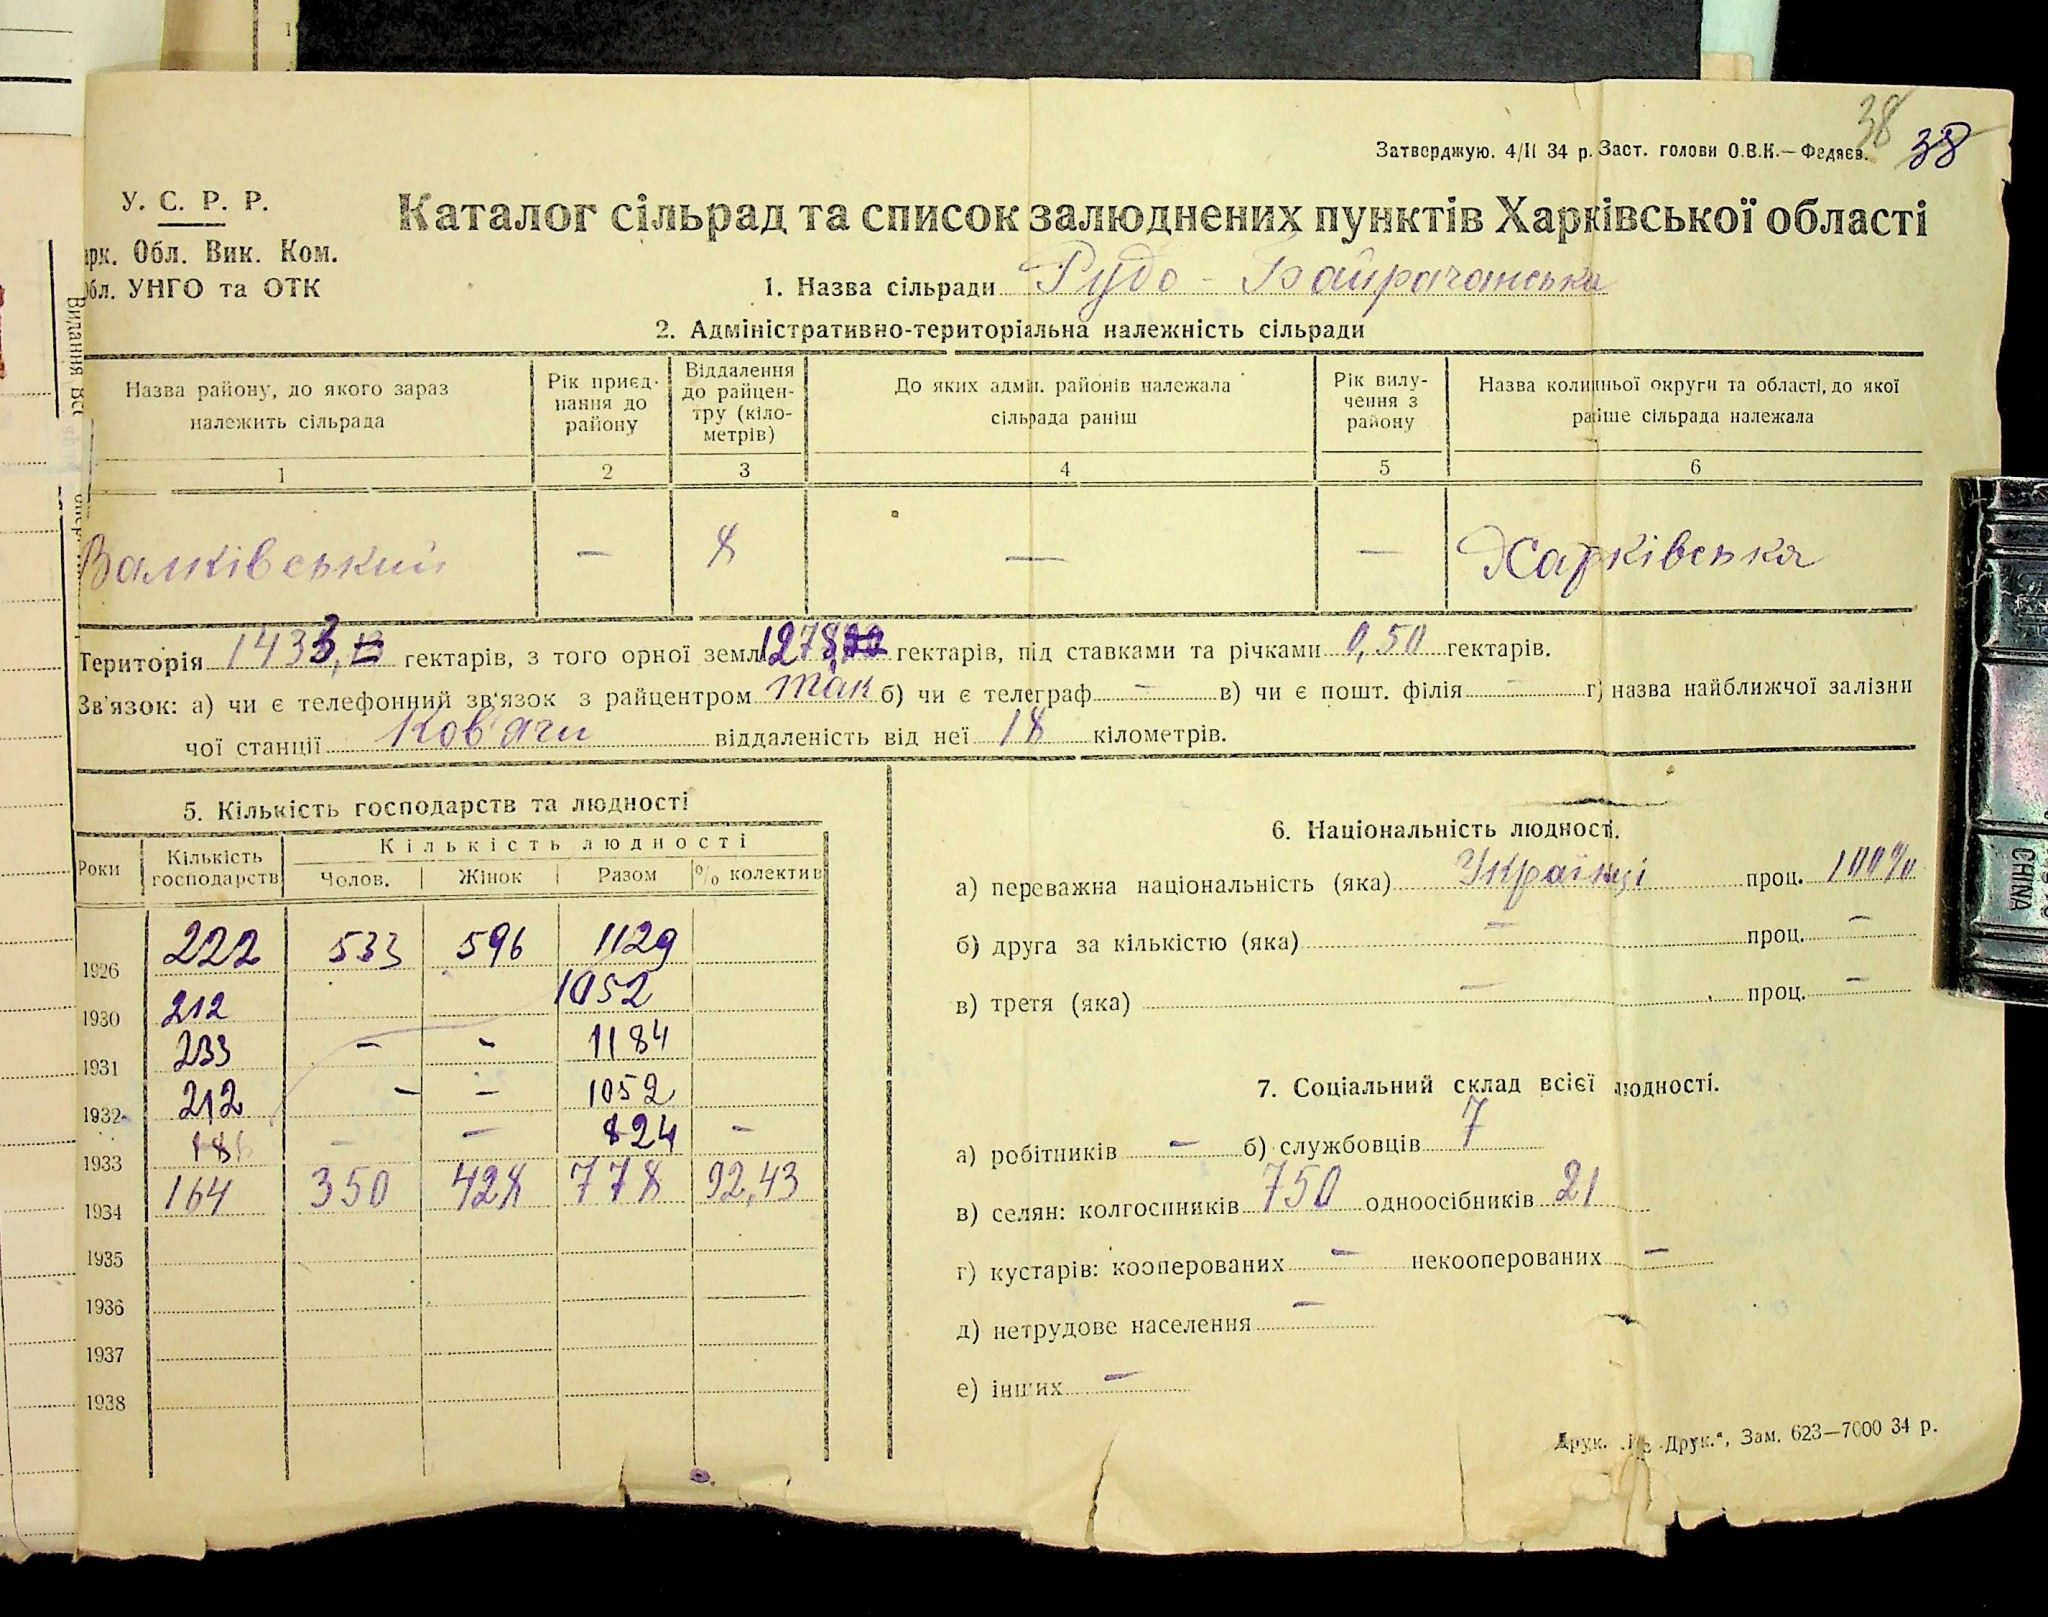 38 38
Затверджую. 4/II 34 р. Заст. голови О.В.К.—Федяєв.
У. С. Р. Р.
арк. Обл. Вик. Ком.
Обл. УНГО та ОТК
Каталог сільрад та список залюднених пунктів Харківської області
1. Назва сільради Рудо-Байрачанська
2. Адміністративно-територіальна належність сільради
Назва району, до якого зараз належить сільрада | Рік приєднання до району | Віддалення до райцентру (кілометрів) | До яких адмін. районів належала сільрада раніш | Рік вилучення з району | Назва колишньої округи та області, до якої раніше сільрада належала
1 | 2 | 3 | 4 | 5 | 6
Валківський | — | 8 | — | — | Харківська
Територія 1433, гектарів, з того орної землі 1278, гектарів, під ставками та річками 0,50 гектарів.
Зв'язок: а) чи є телефонний зв'язок з райцентром так б) чи є телеграф — в) чи є пошт. філія — г) назва найближчої залізни
чої станції Ков'яги віддаленість від неї 18 кілометрів.
5. Кількість господарств та людності
Роки | Кількість господарств | Кількість людності
Чолов. | Жінок | Разом | % колектив
1926 | 222 | 533 | 596 | 1129
1930 | 212 | 1052
1931 | 233 | — | — | 1184
1932 | 212 | — | — | 1052
1933 | — | — | 824 | —
1934 | 164 | 350 | 428 | 778 | 92,43
1935
1936
1937
1938
6. Національність людності.
а) переважна національність (яка) Українці проц. 100%
б) друга за кількістю (яка) — проц. —
в) третя (яка) — проц. —
7. Соціальний склад всієї людності.
а) робітників — б) службовців 7
в) селян: колгоспників 750 одноосібників 21
г) кустарів: кооперованих — некооперованих —
д) нетрудове населення —
е) інших —
Друк. Друк.", Зам. 623—7000 34 р.
Видання
CHINA